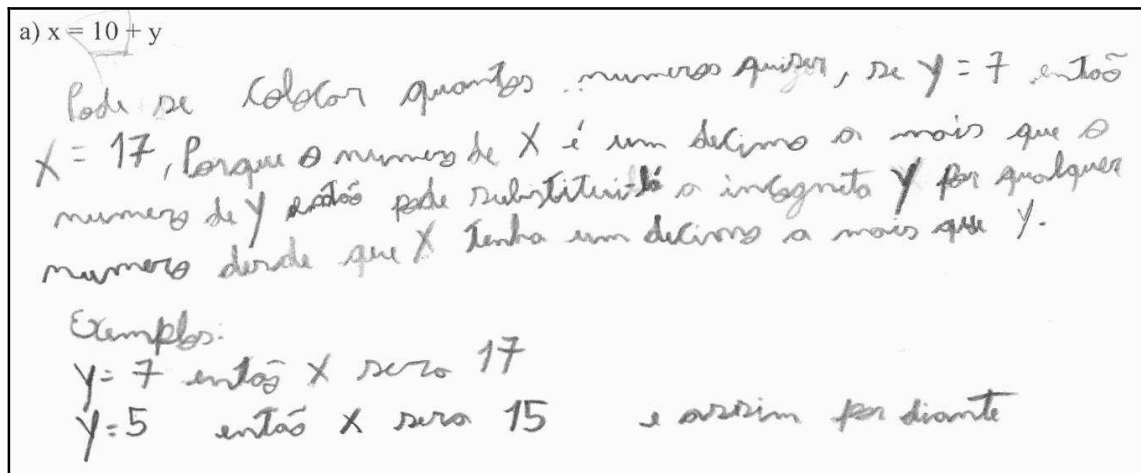 a) x = 10 + y
Pode se colocar quantos numeros quiser, se y = 7 entoõ
X = 17, Porque o numero de X é um decimo a mais que o
numero de y entoõ pode substitui-lá a incognita y por qualquer
numero desde que X tenha um decimo a mais que y.
Exemplos:
y = 7 entoõ X sera 17
y = 5 entoõ X sera 15 e assim por diante